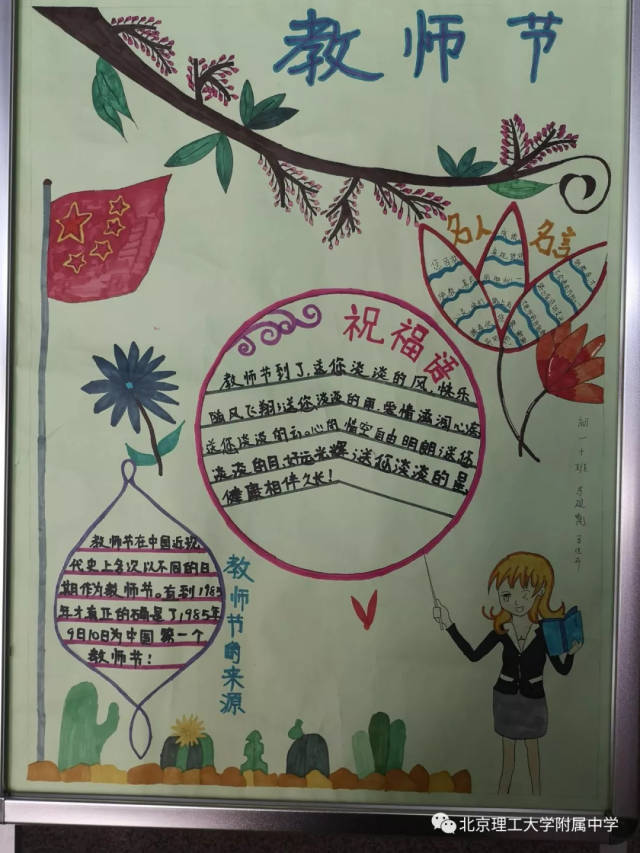 教师节
名人名言
祝福语
教师节到了,送您淡淡的风,快乐
随风飞翔;送您淡淡的雨,爱情滋润心房
送您淡淡的云,心的情空自由明朗;送您
淡淡的日,好运光耀;送您淡淡的星,
健康相伴久长!
教师节在中国近现
代史上多次以不同的日
期作为教师节。直到1985
年才真正的确是了1985年
9月10日为中国第一个
教师节!
教师节的来源
初一十班
北京理工大学附属中学